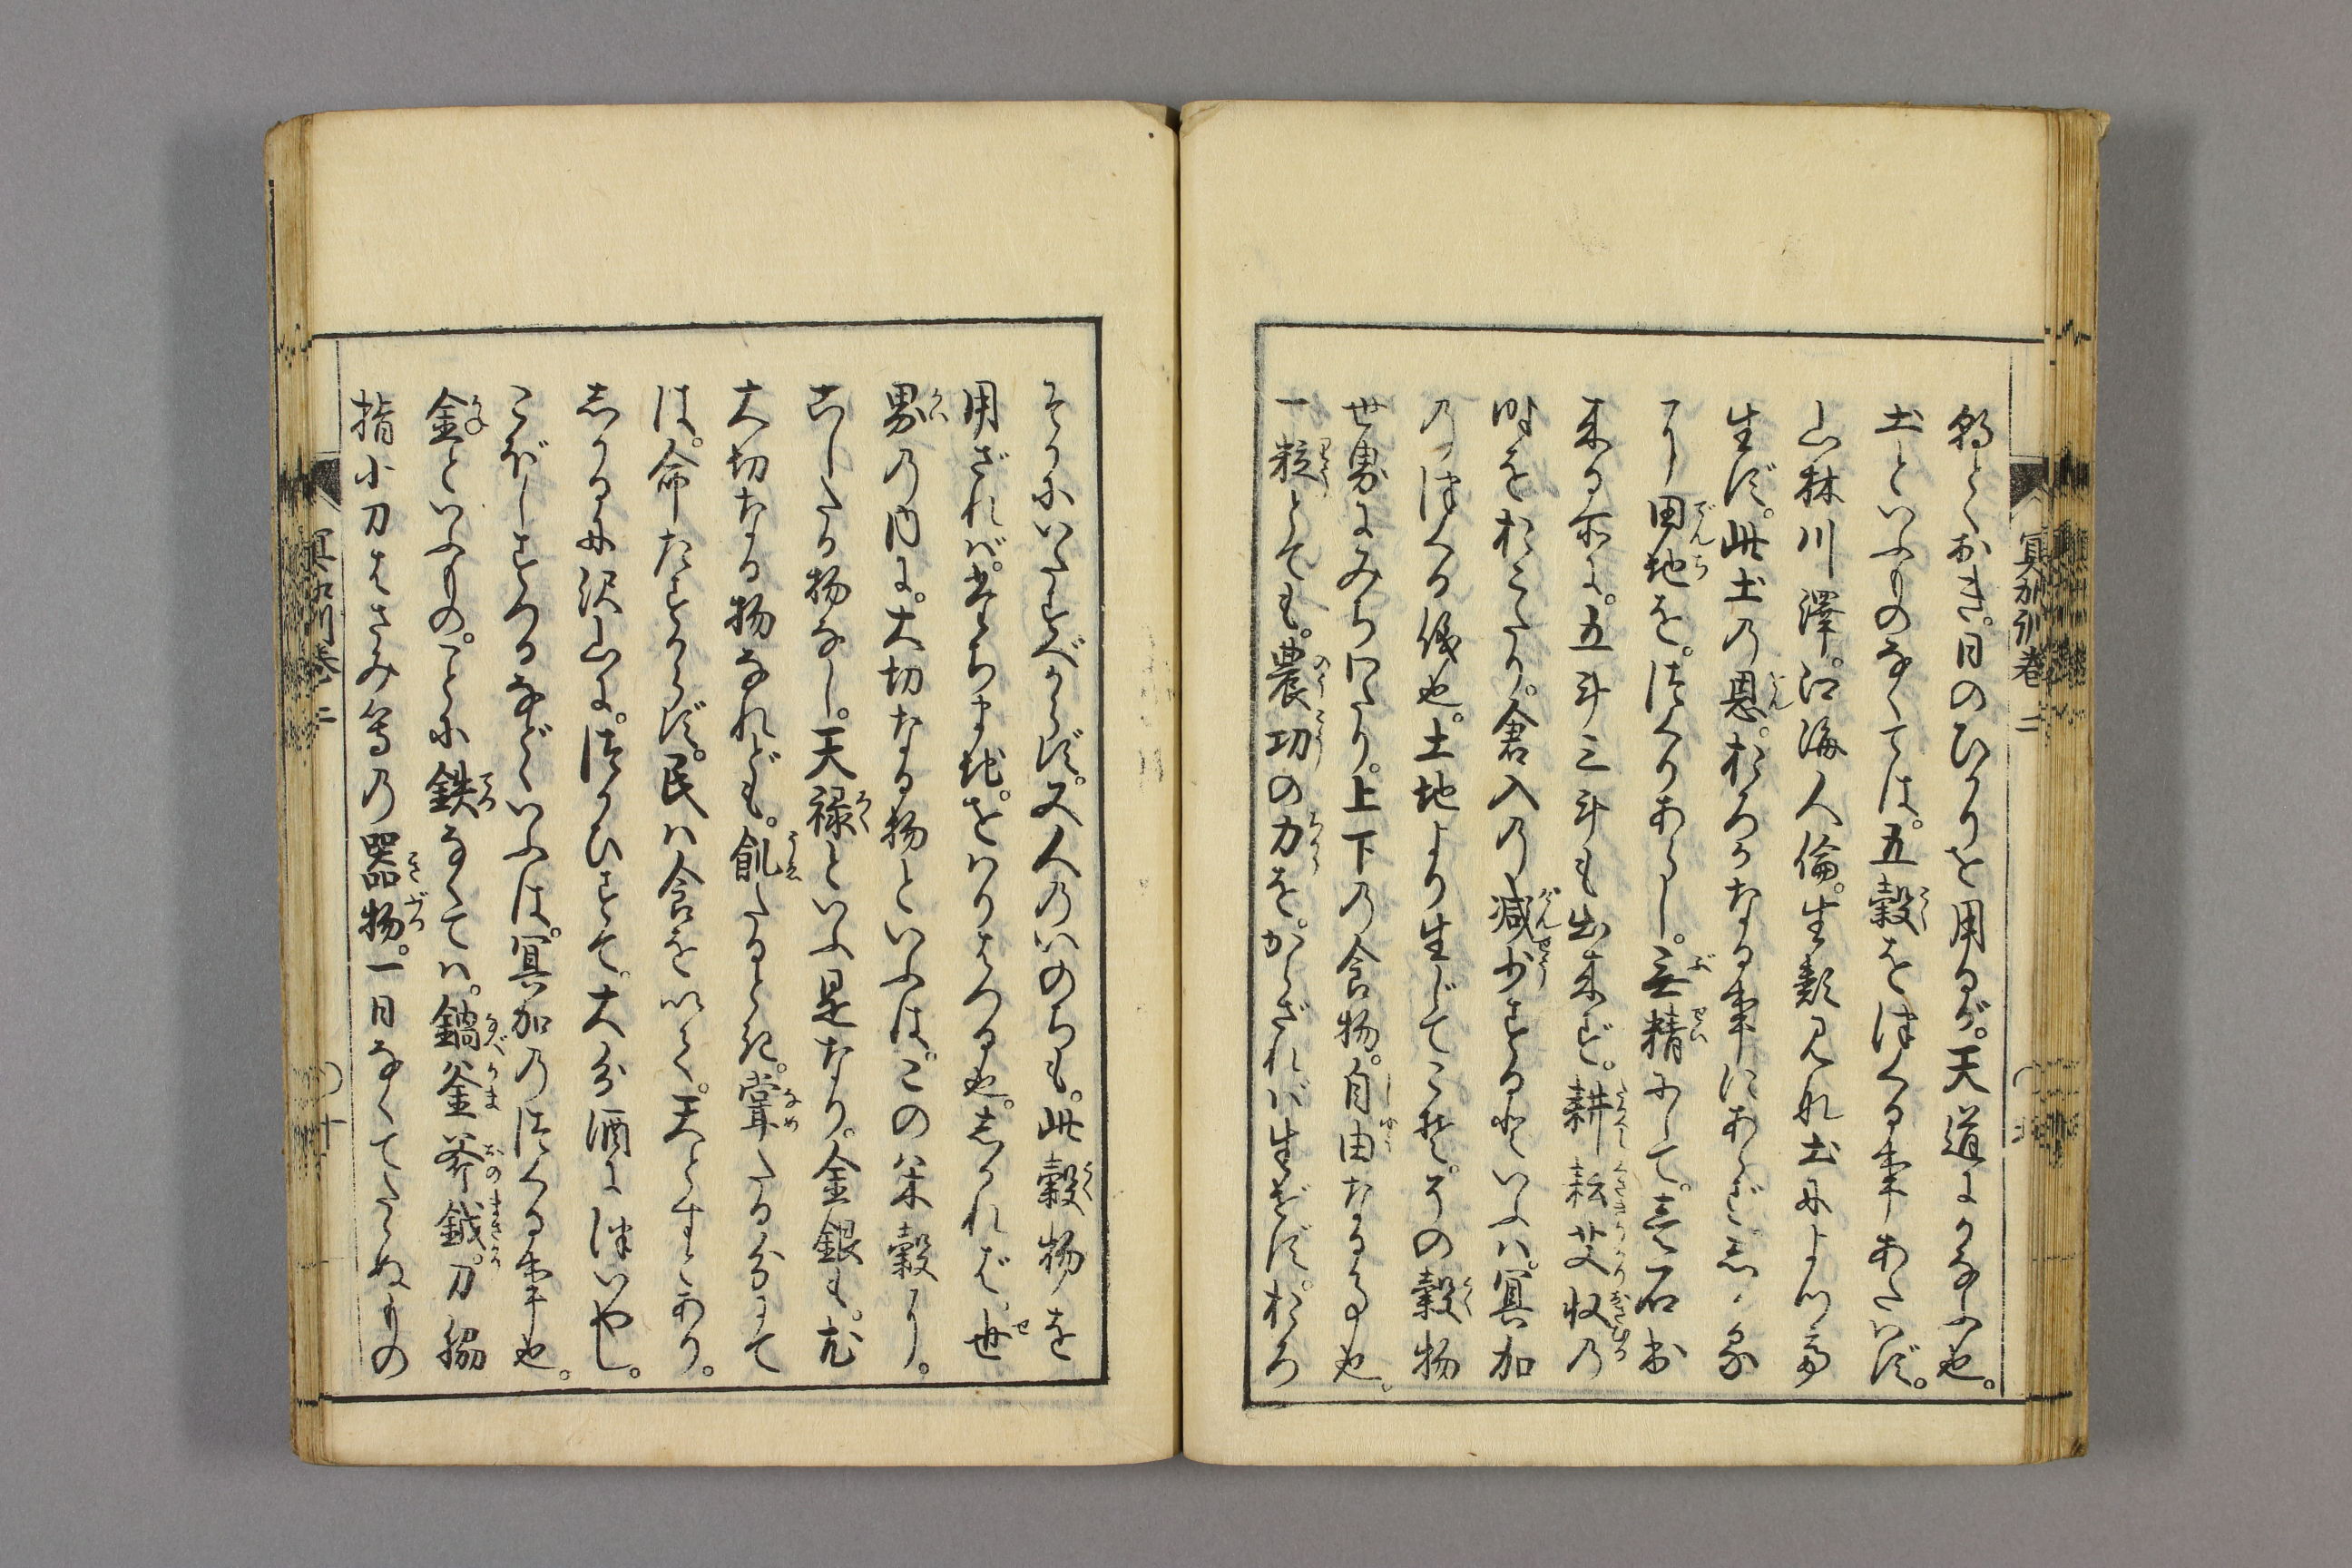 冥加訓巻二
得とくおき。日のひかりを用るが。天道にかなふ也。
土といふものなくては。五穀をつくる事あたはず。
山林川澤。江海人倫。生類みな土によつて
生ず。此土の恩。おろかなる事にあらず。
田地を。つくりあらし。無精にして。壱石出
来る所に。五斗三斗も出来ず。耕耘芟収の
時をおこたり。倉入の減少するといふハ。冥加
のつくる儀也。土地より生じてこそ。その穀物
世界にみちわたり。上下の食物。自由なる事也。
一粒とても。農功の力を。からざれバ生ぜず。おろ
そかにいたすべからず。又人のいのちも。此穀物を
用ざれバ。たちまち。をハりはつる也。しかれば。世
界の内に。大切なる物といふは。この米穀なり。
こしたる物なし。天禄といふ是なり。金銀も。尤
大切なる物なれども。飢たるとき。嘗たる分にて
は。命たすからず。民ハ食をいて。天とすとあり。
しかるに沢山に。つかひすて。大分酒につひやし。
こぼしすつるなどといふは。冥加のつくる事也。
金といふもの。ことに鉄なくてハ。鍋釜斧鉞。刀脇
指小刀はさみ等の器物。一日なくてたらぬもの
冥加訓巻二
十